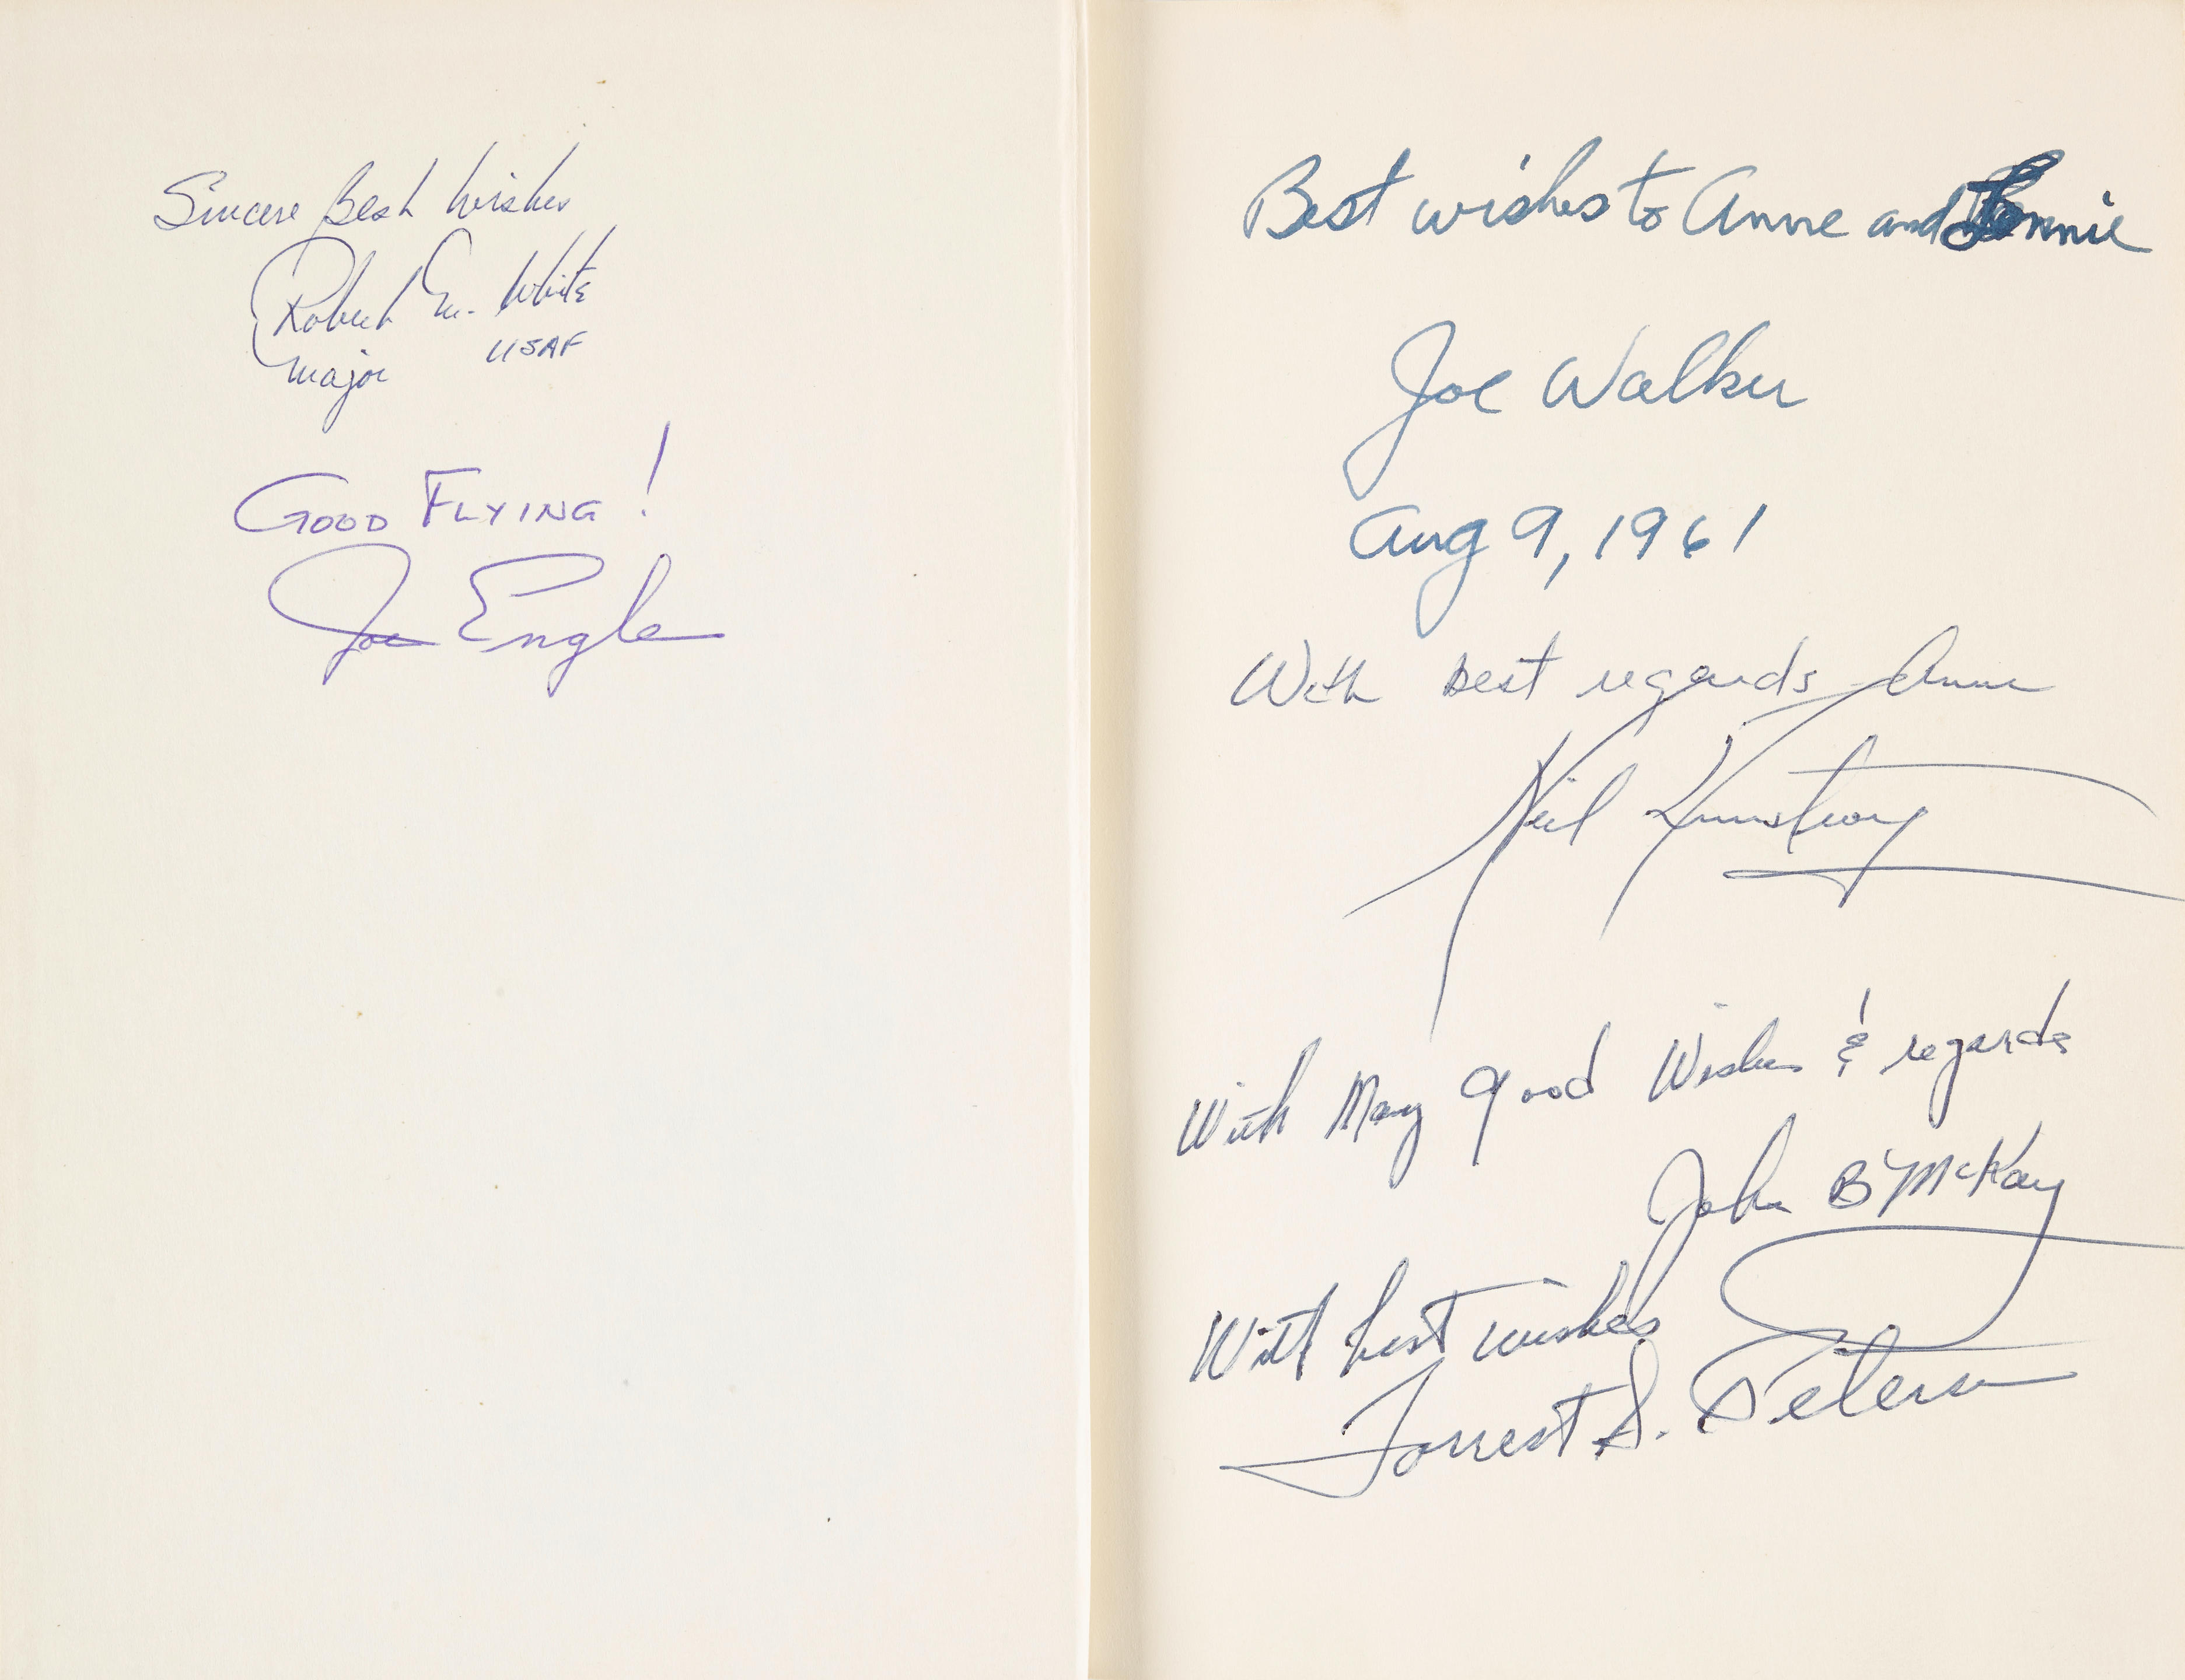 Sincere Best Wishes
Robert M. White
Major USAF
GOOD FLYING!
Joe Engle
Best wishes to Anne and
Joe Walker
Aug 9, 1961
With best regards Anne
Neil Armstrong
With Many good Wishes & regards
John B McKay
With best wishes
Forrest S. Petersen